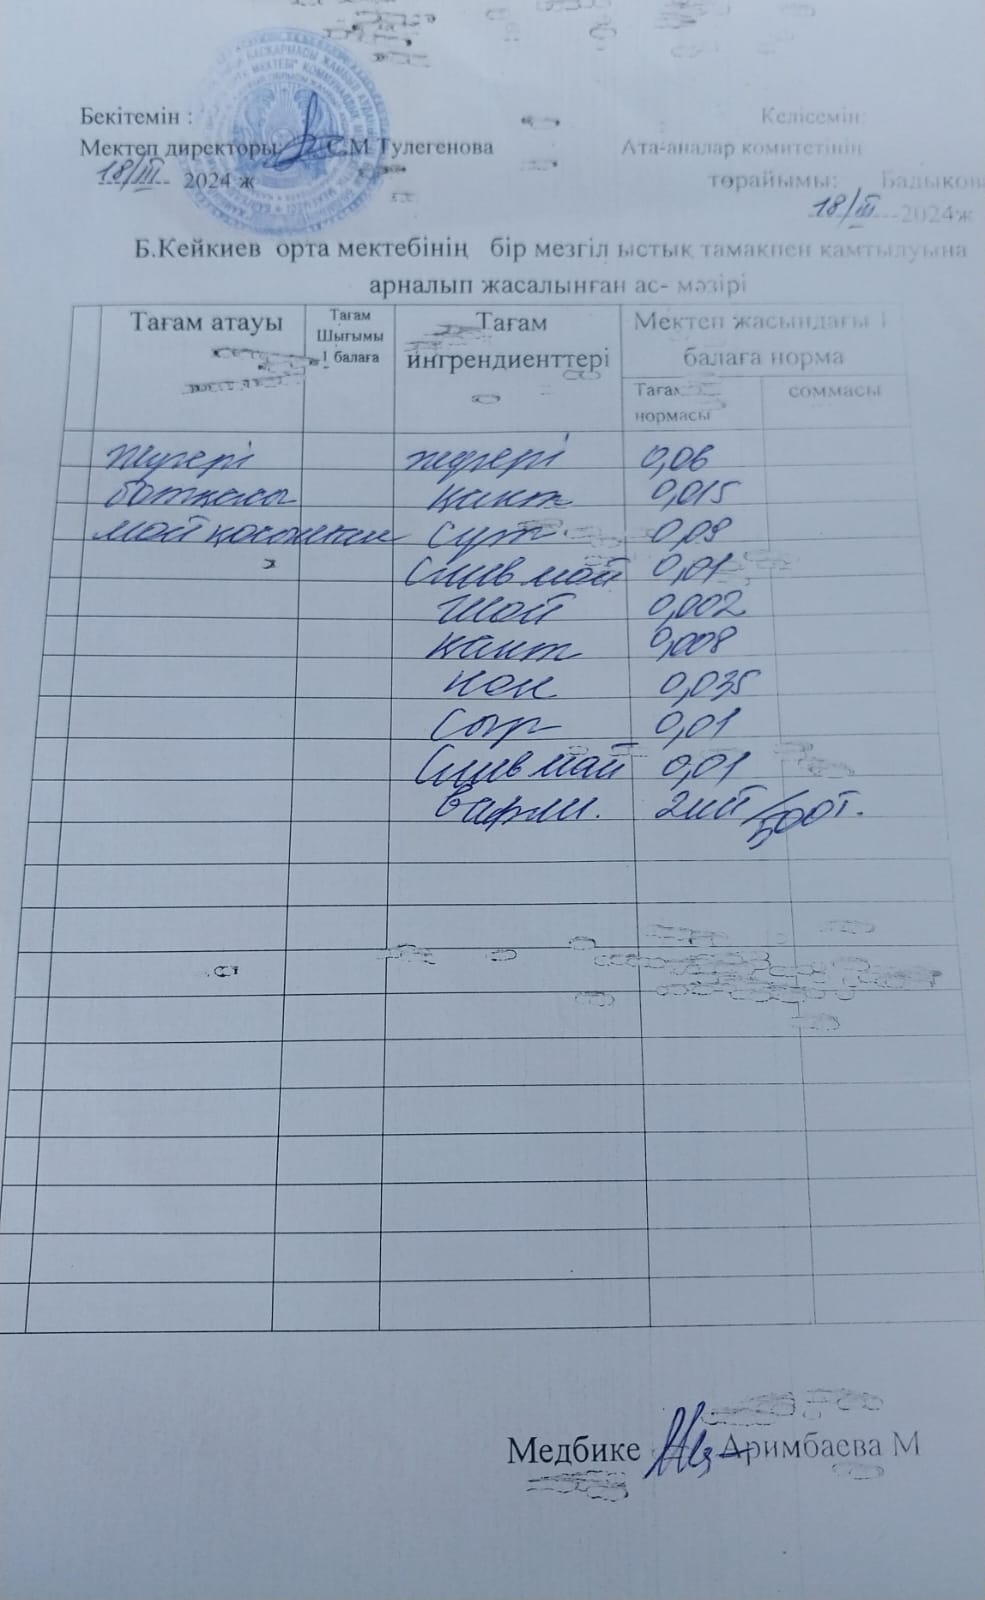 Бекітемін : Келісемін:
Мектеп директоры: С.М Тулегенова Ата-аналар комитетінің
18/III 2024 ж төрайымы: Бадыков
18/III 2024ж
Б.Кейкиев орта мектебінің бір мезгіл ыстық тамақпен қамтылуына
арналып жасалынған ас- мәзірі
Тағам атауы
Тағам
Шығымы
1 балаға
Тағам
ингрендиенттері
Мектеп жасындағы 1
балаға норма
Тағам
нормасы
соммасы
Жүгері жүгері 0,06
ботқасы қант 0,015
май қосылған сүт 0,09
Слив май 0,01
Шай 0,002
қант 0,008
нан 0,035
Сыр 0,01
Слив май 0,01
вафли. 2шт/500т.
Медбике Аримбаева М